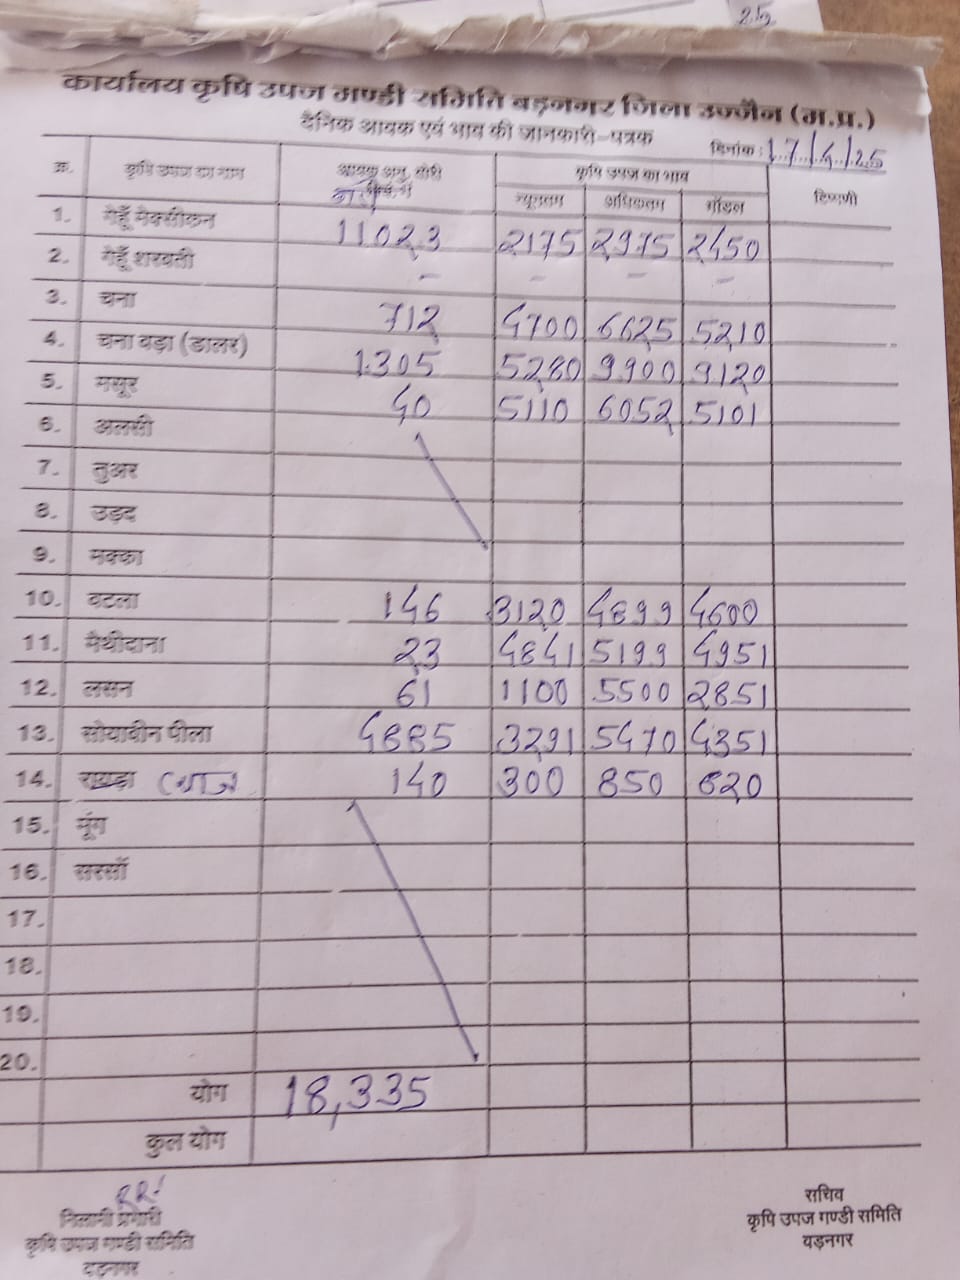 25
कार्यालय कृषि उपज मण्डी समिति बड़नगर जिला उज्जैन (म.प्र.)
दैनिक आवक एवं भाव की जानकारी-पत्रक
दिनांक : 17/4/25
क्र. कृषि उपज का नाम आवक अनु. बोरी कृषि उपज का भाव टिप्पणी
न्यूनतम अधिकतम मॉडल
1. गेहूँ मेक्सीकन 11023 2175 2975 2450
2. गेहूँ शरबती - - - -
3. चना 712 4700 6625 5210
4. चना बड़ा (डालर) 1305 5280 9900 9120
5. मसूर 40 5110 6052 5101
6. अलसी
7. तुअर
8. उड़द
9. मक्का
10. बटला 146 3120 4899 4600
11. मैथीदाना 23 4841 5199 4951
12. लसन 61 1100 5500 2851
13. सोयाबीन पीला 4885 3291 5470 4351
14. रायड़ा प्याज 140 300 850 620
15. मूंग
16. सरसों
17.
18.
19.
20.
योग 18,335
कुल योग
निलामी प्रभारी
कृषि उपज मण्डी समिति
बड़नगर
सचिव
कृषि उपज मण्डी समिति
बड़नगर